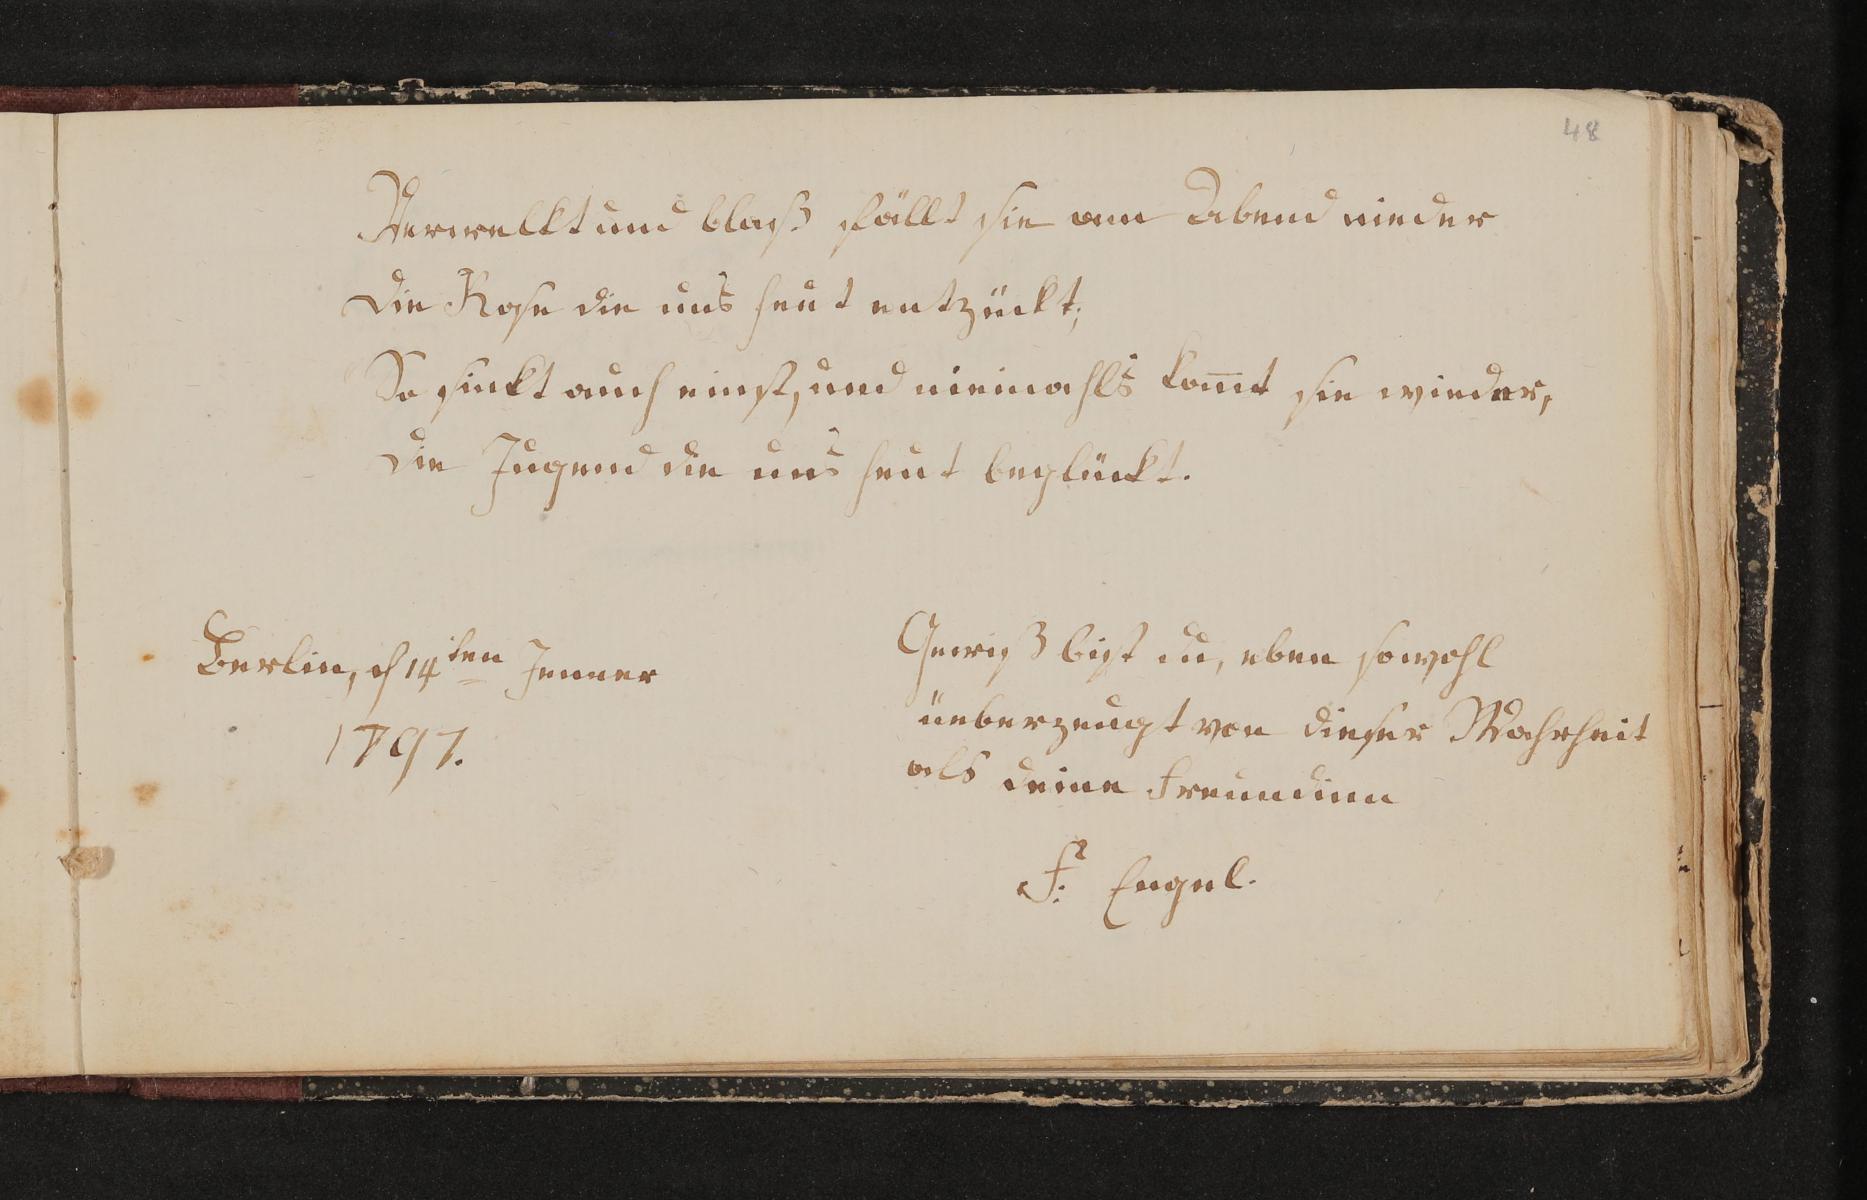 48
Verwelkt und blaß fällt sie am Abend nieder
die Rose die uns heut entzückt;
So sinkt auch einst, und niemahls kom̅t sie wieder,
die Jugend die uns heut beglückt.
Berlin, d 14ten Jenner
1797.
Gewiß bist du, eben sowohl
üeberzeugt von dieser Wahrheit
als deine Freundinn
F. Engel.